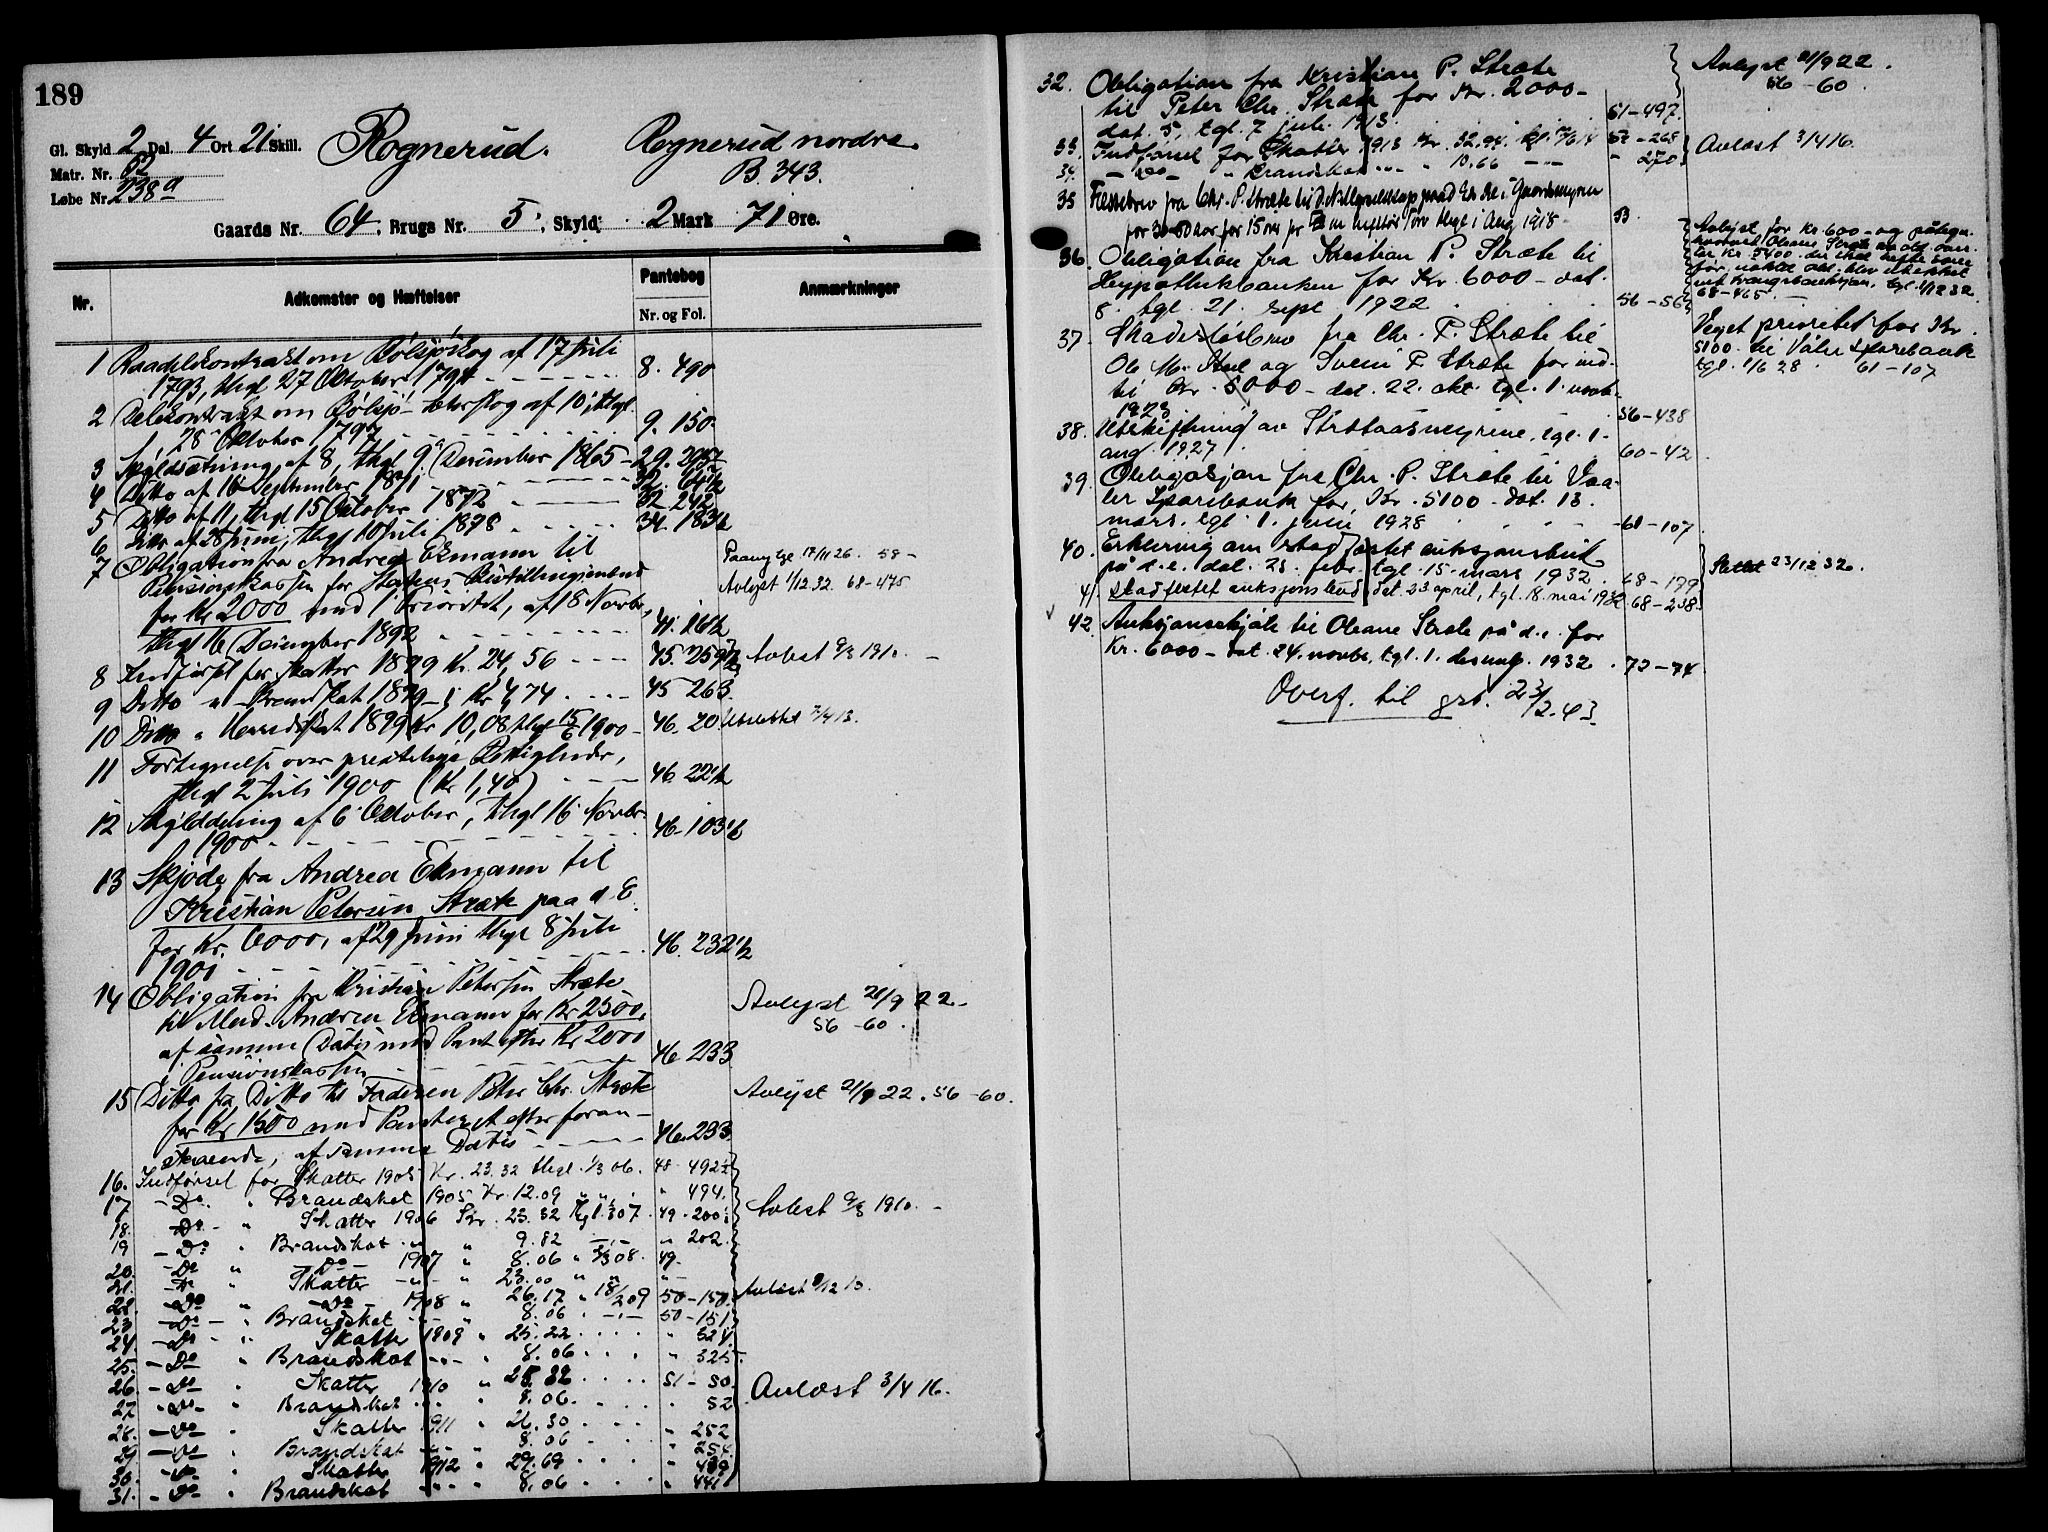 189
Gl. Skyld 2 Dal. 4 Ort 21 Skill.
Rognerud.
Rognerud nordre.
B. 343.
Matr. Nr. 82
Løbe Nr. 238 a
Gaards Nr. 64, Brugs Nr. 5, Skyld: 2 Mark 71 Øre.
Nr.
Adkomster og Hæftelser
Pantebog
Nr. og Fol.
Anmærkninger
1 Raadelskontrakt om Rølsjøskog af 17 Juli
1793, thgl. 27 Oktober 1794 8. 490
2 Delekontrakt om Rølsjø- skog af 10, thgl.
28 Oktober 1797 9. 150
3 Skyldsætning af 8, thgl 9 December 1865 29. 295
4 Ditto af 16 September 1871 32. 64 1/2
5 Ditto af 11, thgl 15 Oktober 1872 32 242
6 Ditto af 28 Juni, thgl 10 Juli 1878 34. 183 1/2
7 Obligation fra Andrea Ekmann til
Pensionskassen for Statens
for Kr 2000 med 1 Prioritet, af 18 Novbr,
thgl 16 December 1892 41. 16 1/2
Paany tgl 17/11 26. 58 -
Avlyst 1/12.32. 68-475
8 Indførsel for skatter 1899 Kr. 24,56 45. 259 1/2
Avlæst 9/3 1910.
9 Ditto " Brandskat 1899 - Kr 4,74 45 263
10 Ditto " Herredskat 1899 Kr 10,08 thgl 15/6 1900 46. 20
Utslettet 3/4 13.
11 Fortegnelse over prestelige Rettigheder,
thgl 2 Juli 1900 (Kr 1,40) 46. 22 1/2
12 Skylddeling af 6 Oktober, thgl 16 Novbr
1900 46. 103 1/2
13 Skjøde fra Andrea Ekmann til
Kristian Petersen Stræte paa d. E.
for Kr. 6000, af 29 Juni thgl 8 Juli
1901 46. 232 1/2
14 Obligation fra Kristian Petersen Stræte
til Mad. Andrea Ekmann for Kr 2500,
af samme Datis med Pant efter Kr 2000
i Pensionskassen 46 233
Avlyst 21/9 22
56 - 60.
15 Ditto fra Ditto til Faderen Peter Chr. Stræte
for Kr 1500 med Panteret efter foran-
staaende, af samme Datis 46. 233
Avlyst 21/9 22. 56 - 60.
16. Indførsel for Skatter 1905 Kr. 23.32 thgl. 1/3 06. 48 - 492 1/2
17 - Do " Brandskat 1905 Kr. 12.09 " " " 494.
18. - Do - " Skatter 1906 Kr. 23.32 Tgl. 307. 49 - 200
Avlæst 9/3 1910.
19 - Do " Brandskat " 9.82 " 202.
20. - Do " - Do - 1907 " 8.06 " 3/3 08. 49.
21. - Do " Skatter " 23.00 " "
22. - Do " - Do - 1908 " 26.17 " 18/2 09 50 - 150.
Avlæst 9/12 13.
23 - Do - " Brandskat " 8.06 50 - 151
24. - Do - " Skatter 1909 " 25.22 " 324.
25. - Do " Brandskat " 8.06 " 325.
26. - Do " Skatter 1910 " 25.32 51 - 50.
Avlæst 3/4 16.
27 - Do " Brandskat " 8.06 " 52
28. - Do " Skatter 1911 " 26.30 " 252
29 - Do " Brandskat " 8.06 " 254.
30. - Do " Skatter 1912 " 29.69 " 439
31. - Do " Brandskat " 8.06 " 441
32. Obligation fra Kristian P. Stræte
til Peter Chr. Stræte for Kr. 2000 -
dat. 5, tgl. 7 juli 1913. 51 - 497.
Avlyst 21/9 22.
56 - 60.
33. Indførsel for Skatter 1913 Kr. 32.94 52 - 268
34. - Do - " Brandskat " 10.66 " 270
Avlæst 3/4 16.
35 Fæstebrev fra Chr. P. Stræte til
for 30-50 aar for 15 øre pr thgl i Aug 1918 53
36. Obligation fra Kristian P. Stræte til
Hypothekbanken for Kr. 6000 - dat.
8. tgl. 21. sept 1922 56 - 56
Avlyst for Kr. 600 - og påtegn.
hvorved Oleane Stræte
lår Kr. 5400 -
1/12 32
68 - 465.
Veget prioritet for Kr.
5100 - til Våler Sparebank
tgl. 1/6 28. 61 - 107
37. Skadesløsbrev fra Chr. P. Stræte til
Ole M. og P. Stræte for ind-
til Kr. 5000 - dat. 22. okt. tgl. 1. novb.
1923 56 - 438
38. Utskiftning av Strætaasmyrene, tgl. 1.
aug. 1927 60 - 42
39. Obligasjon fra Chr. P. Stræte til Vaa-
ler Sparebank for Kr. 5100 - dat. 13.
mars. tgl. 1. juni 1928 61 - 107
40. Erklæring om stadfæstet auksjonsbud
på d. e. dat. 23. febr. tgl. 15. mars 1932. 68 - 179
Slettet 23/12 32.
41. Stadfestet auksjonsbud, dat. 23 april, tgl. 18. mai 1932 68 - 238
42. Auksjonsskjøte til Oleane Stræte på d. e. for
Kr. 6000 - dat. 24. novbr. tgl. 1. desemb. 1932. 72 - 74
Overf. til grb. 23/2.43.